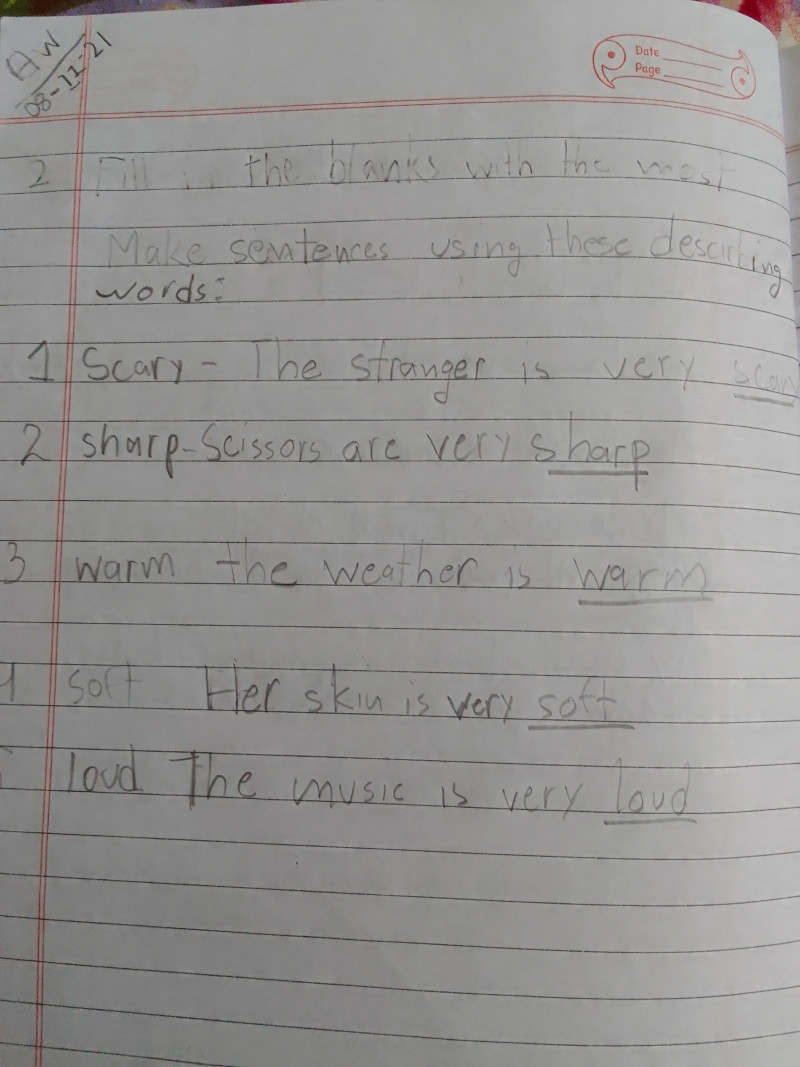 HW
08-12-21
Date
Page
2 Fill in the blanks with the most
Make sentences using these descirbing
words:
1 Scary - The stranger is very scary
2 sharp - Scissors are very sharp
3 warm the weather is warm
4 soft Her skin is very soft
loud The music is very loud